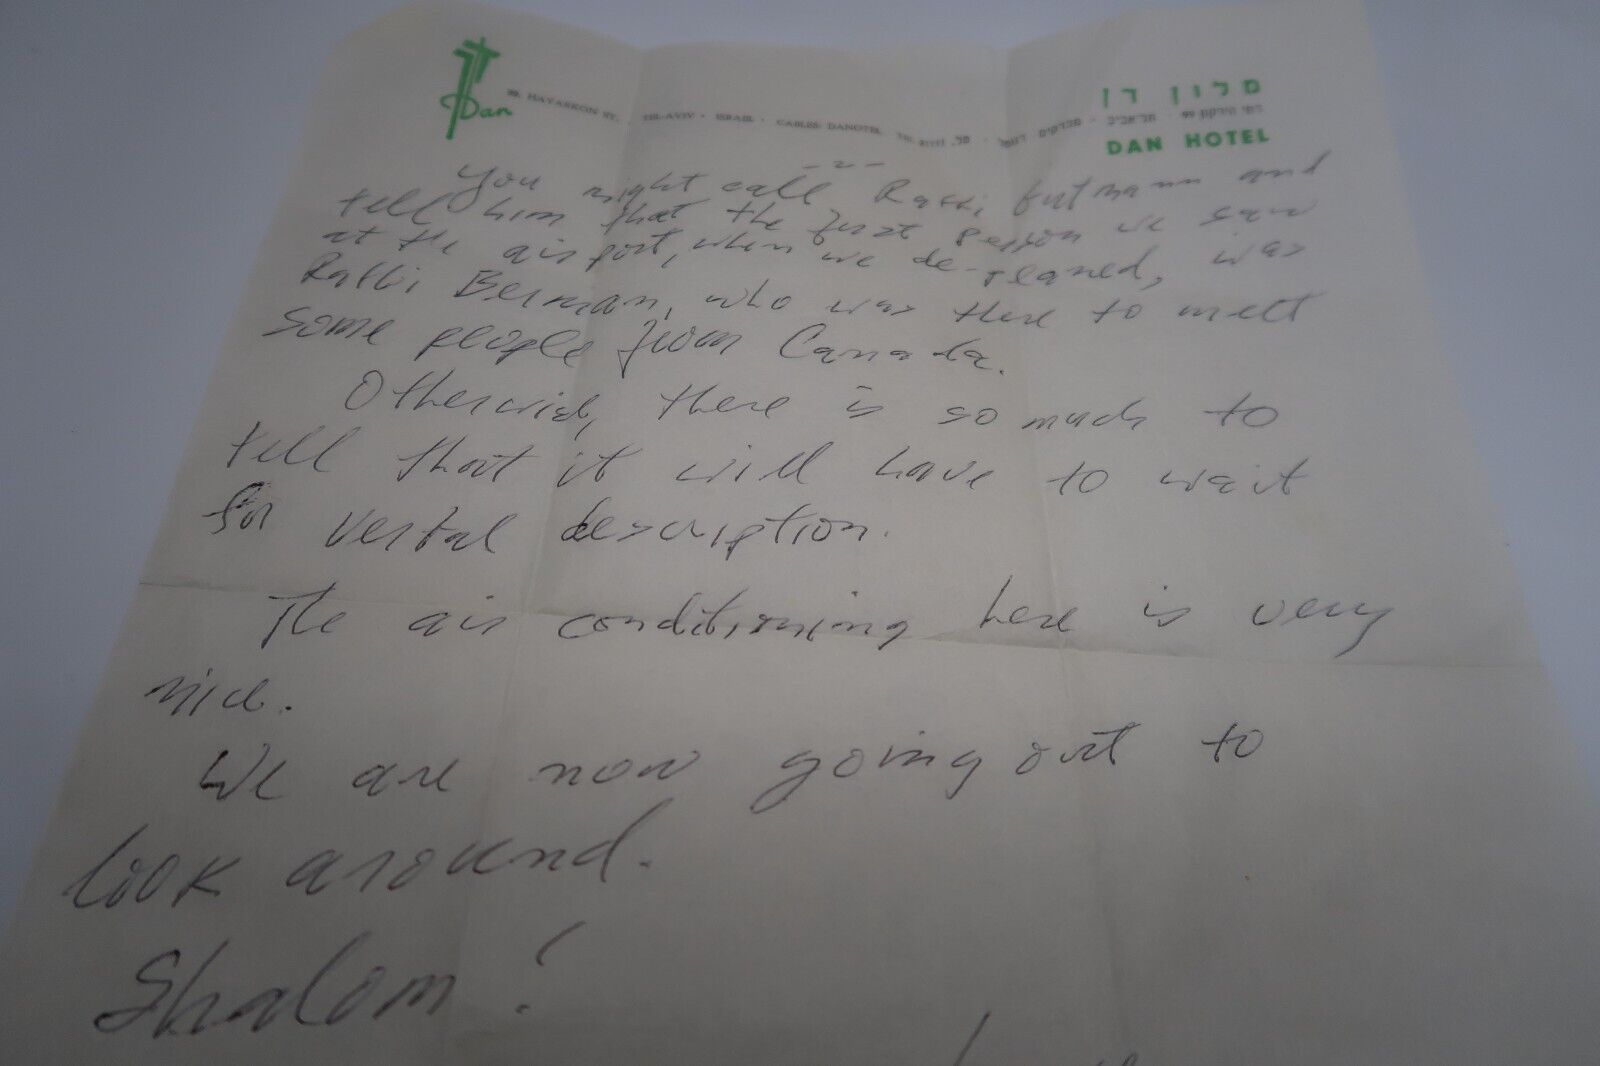 Dan
99, HAYARKON ST. · TEL-AVIV · ISRAEL · CABLES: DANOTEL
מלון דן
רח׳ הירקון 99 · תל־אביב
DAN HOTEL
- 2 -
You might call Rabbi Gutmann and
tell him that the first person we saw
at the airport, when we de-planed, was
Rabbi Berman, who was there to meet
some people from Canada.
Otherwise, there is so much to
tell that it will have to wait
for verbal description.
The air conditioning here is very
nice.
We are now going out to
look around.
Shalom!